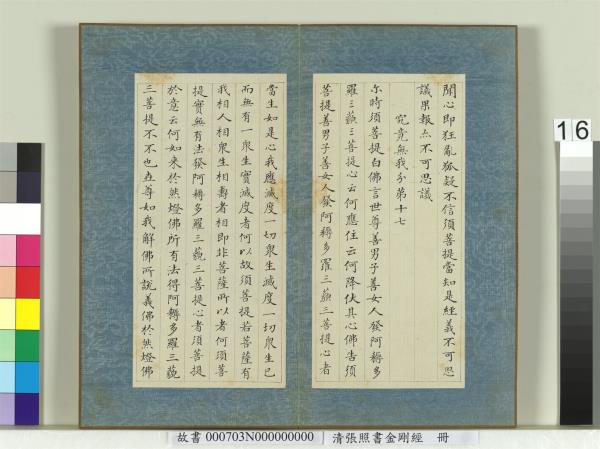 聞心即狂亂狐疑不信須菩提當知是經義不可思
議果報亦不可思議
究竟無我分第十七
尒時須菩提白佛言世尊善男子善女人發阿耨多
羅三藐三菩提心云何應住云何降伏其心佛告須
菩提善男子善女人發阿耨多羅三藐三菩提心者
當生如是心我應滅度一切衆生滅度一切衆生已
而無有一衆生實滅度者何以故須菩提若菩薩有
我相人相衆生相壽者相即非菩薩所以者何須菩
提實無有法發阿耨多羅三藐三菩提心者須菩提
於意云何如來於然燈佛所有法得阿耨多羅三藐
三菩提不不也世尊如我解佛所說義佛於然燈佛
16
故書 000703N000000000 清張照書金剛經 冊